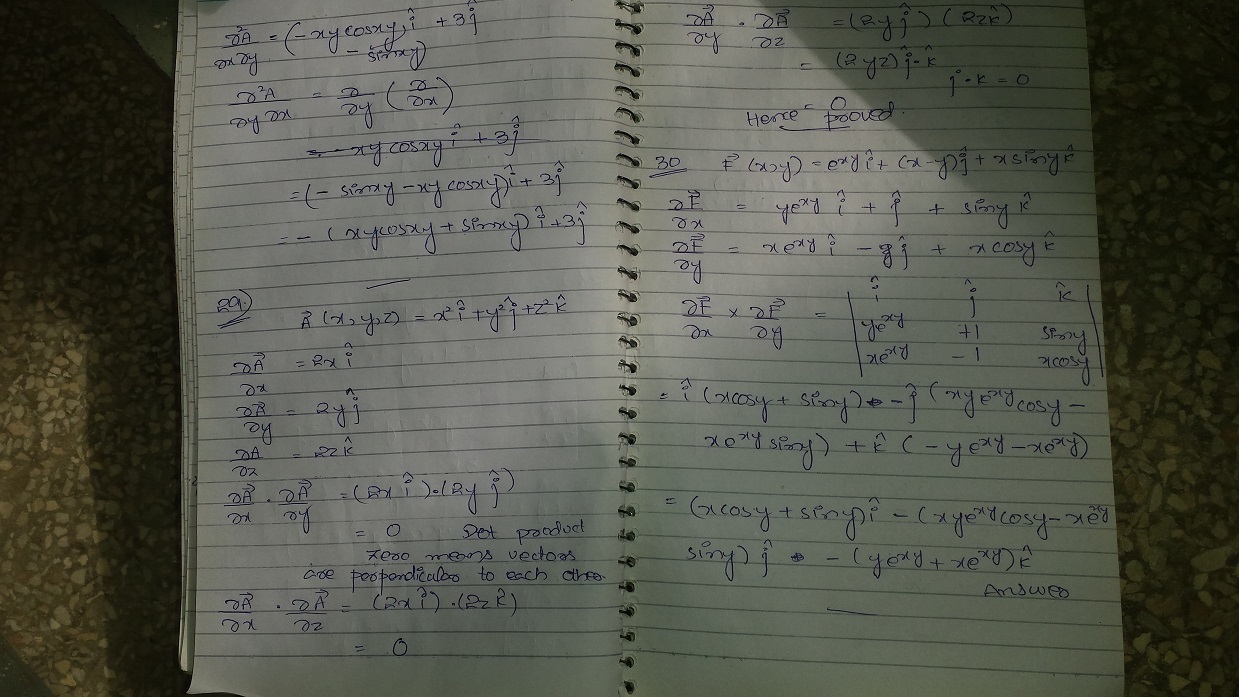 ∂²A/∂x∂y = (-xycosxy - sinxy) î + 3ĵ
∂²A/∂y∂x = ∂/∂y (∂/∂x)
= -xycosxy î + 3ĵ
= (-sinxy - xycosxy) î + 3ĵ
= -(xycosxy + sinxy) î + 3ĵ
29.) A⃗ (x, y, z) = x² î + y² ĵ + z² k̂
∂A⃗/∂x = 2x î
∂A⃗/∂y = 2y ĵ
∂A/∂z = 2z k̂
∂A⃗/∂x · ∂A⃗/∂y = (2x î)·(2y ĵ)
= 0 Dot product
zero means vectors
are perpendicular to each other
∂A⃗/∂x · ∂A⃗/∂z = (2x î)·(2z k̂)
= 0
∂A⃗/∂y · ∂A⃗/∂z = (2y ĵ) (2z k̂)
= (2yz) ĵ·k̂
j·k = 0
= 0
Hence proved.
30 F⃗ (x,y) = e^xy î + (x-y) ĵ + x siny k̂
∂F⃗/∂x = ye^xy î + ĵ + siny k̂
∂F⃗/∂y = xe^xy î - ĵ + x cosy k̂
∂F⃗/∂x × ∂F⃗/∂y = | î ĵ k̂
ye^xy +1 siny
xe^xy -1 xcosy |
= î (xcosy + siny) - ĵ (xye^xy cosy -
xe^xy siny) + k̂ (-ye^xy - xe^xy)
= (xcosy + siny) î - (xye^xy cosy - xe^xy
siny) ĵ - (ye^xy + xe^xy) k̂
Answer